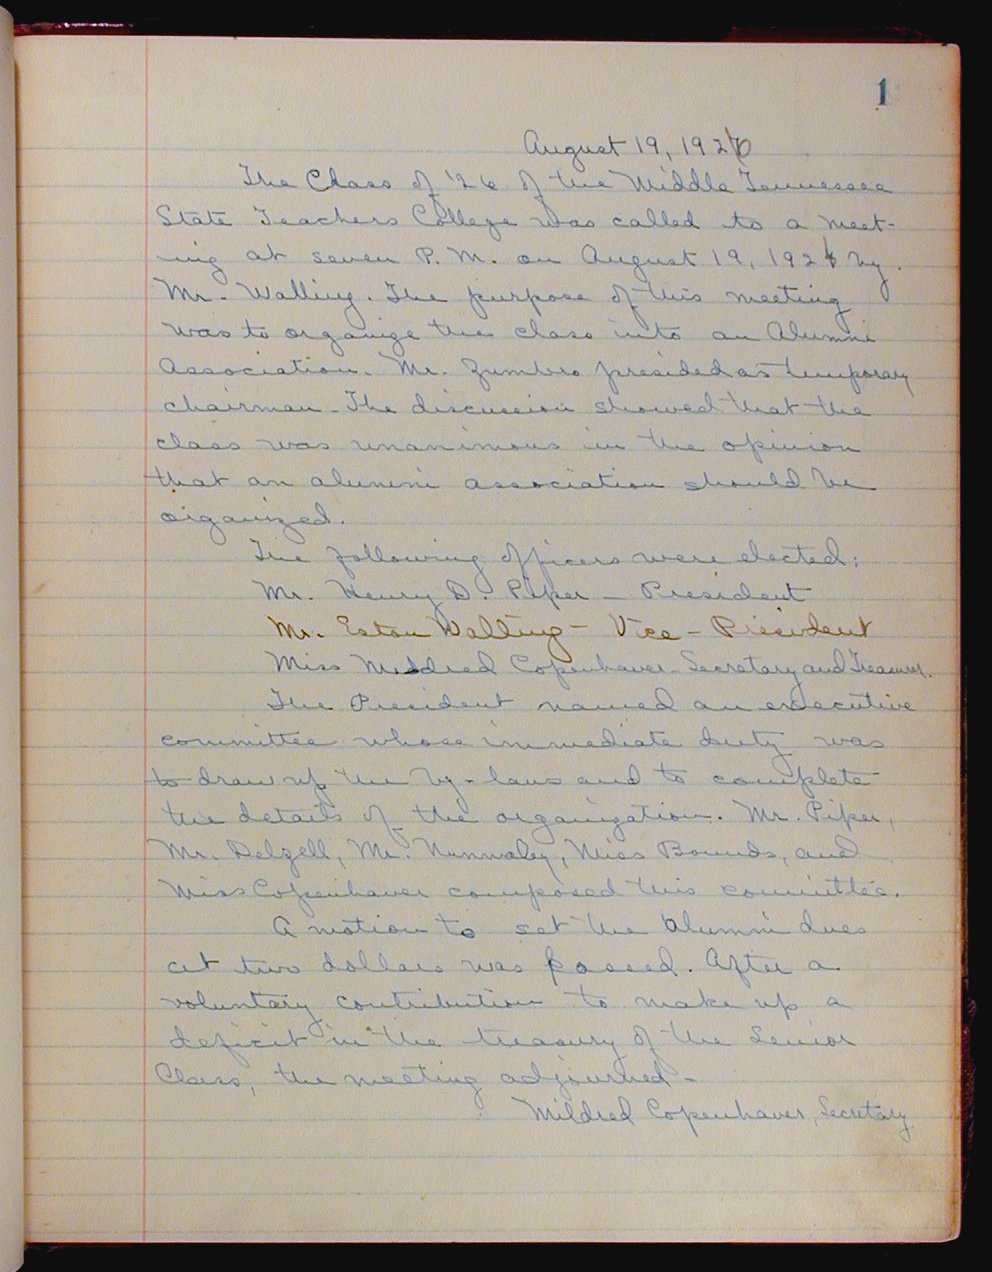 1
August 19, 1926
The Class of '26 of the Middle Tennessee
State Teachers College was called to a meet-
ing at seven P.M. on August 19, 1926 by
Mr. Walling. The purpose of this meeting
was to organize the class into an Alumni
Association. Mr. Zumbro presided as temporary
chairman. The discussion showed that the
class was unanimous in the opinion
that an alumni association should be
organized.
The following officers were elected:
Mr. Henry D. Piper - President
Mr. Eston Walling - Vice - President
Miss Mildred Copenhaver - Secretary and Treasurer.
The President named an executive
committee whose immediate duty was
to draw up the by-laws and to complete
the details of the organization. Mr. Piper,
Mr. Delzell, Mr. Nunnaley, Miss Bounds, and
Miss Copenhaver composed this committee.
A motion to set the alumni dues
at two dollars was passed. After a
voluntary contribution to make up a
deficit in the treasury of the Senior
Class, the meeting adjourned -
Mildred Copenhaver, Secretary